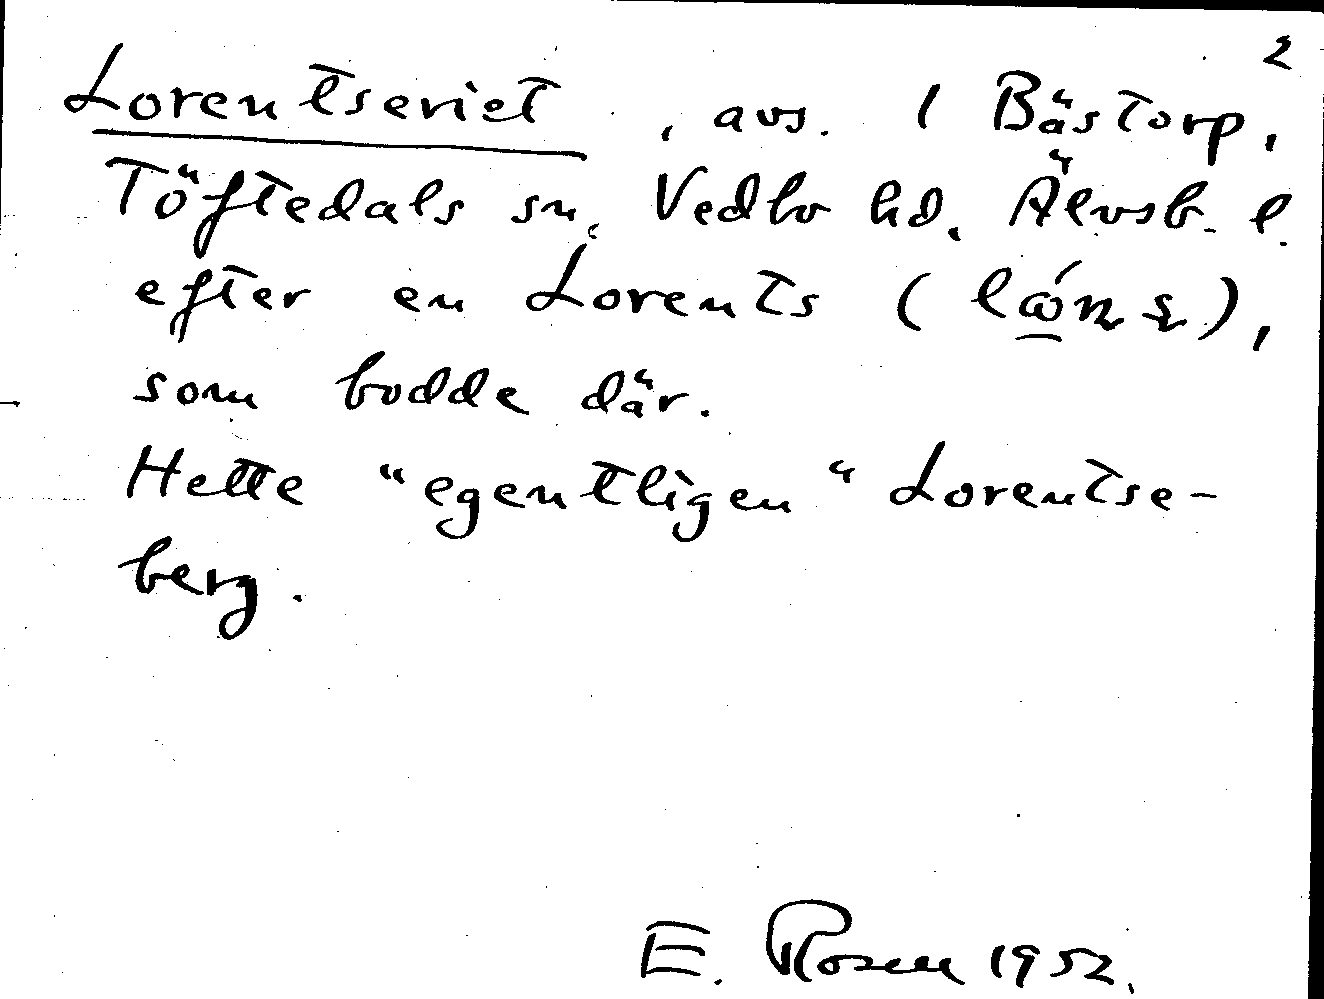 2
Lorentseriet, avs. 1 Bästorp,
Töftedals sn, Vedbo hd, Älvsb. l.
efter en Lorents
som bodde där.
Hette "egentligen" Lorentse-
berg.
E. Rosen 1952.